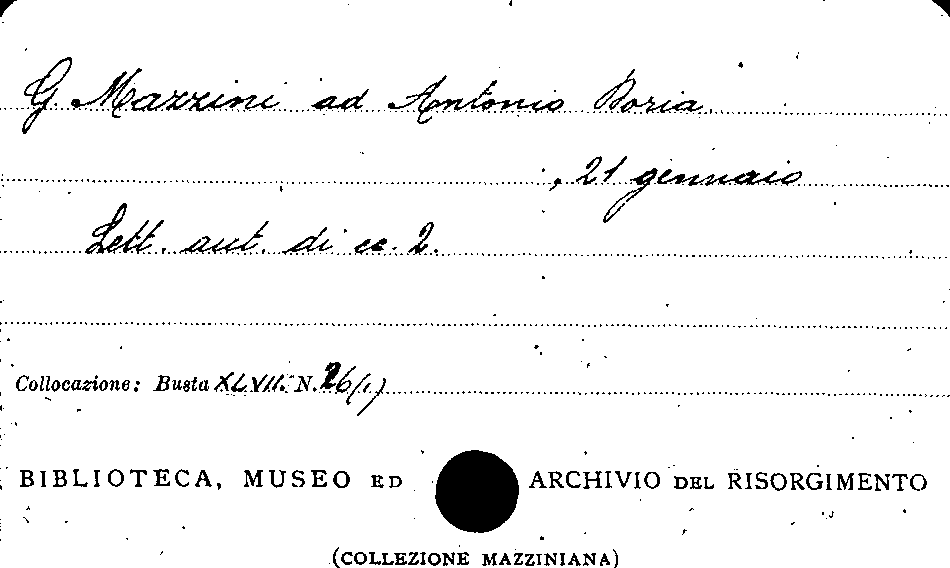 G. Mazzini ad Antonio Doria.
, 21 gennaio
Lett. aut. di cc. 2.
Collocazione: Busta XLVII. N. 26(1)
BIBLIOTECA, MUSEO ED ARCHIVIO DEL RISORGIMENTO
(COLLEZIONE MAZZINIANA)